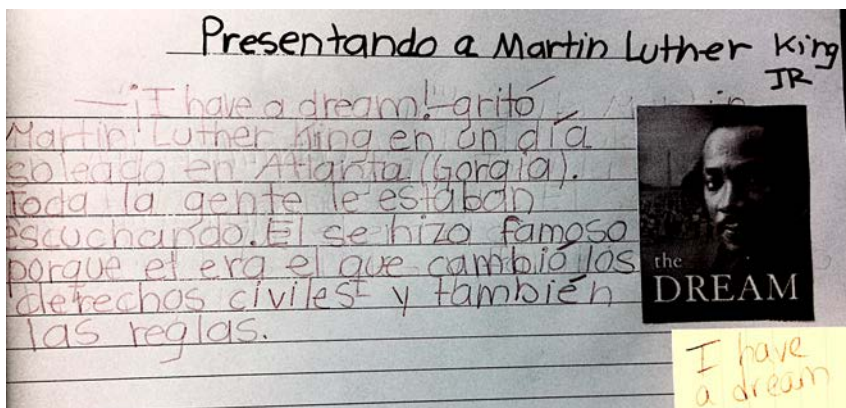 Presentando a Martin Luther King
JR
—¡I have a dream!-gritó
Martin Luther King en un día
soleado en Atlanta (Gorgia).
toda la gente le estaban
escuchando. El se hizo famoso
porque el era el que cambió los
derechos civiles y también
las reglas.
the
DREAM
I have
a dream